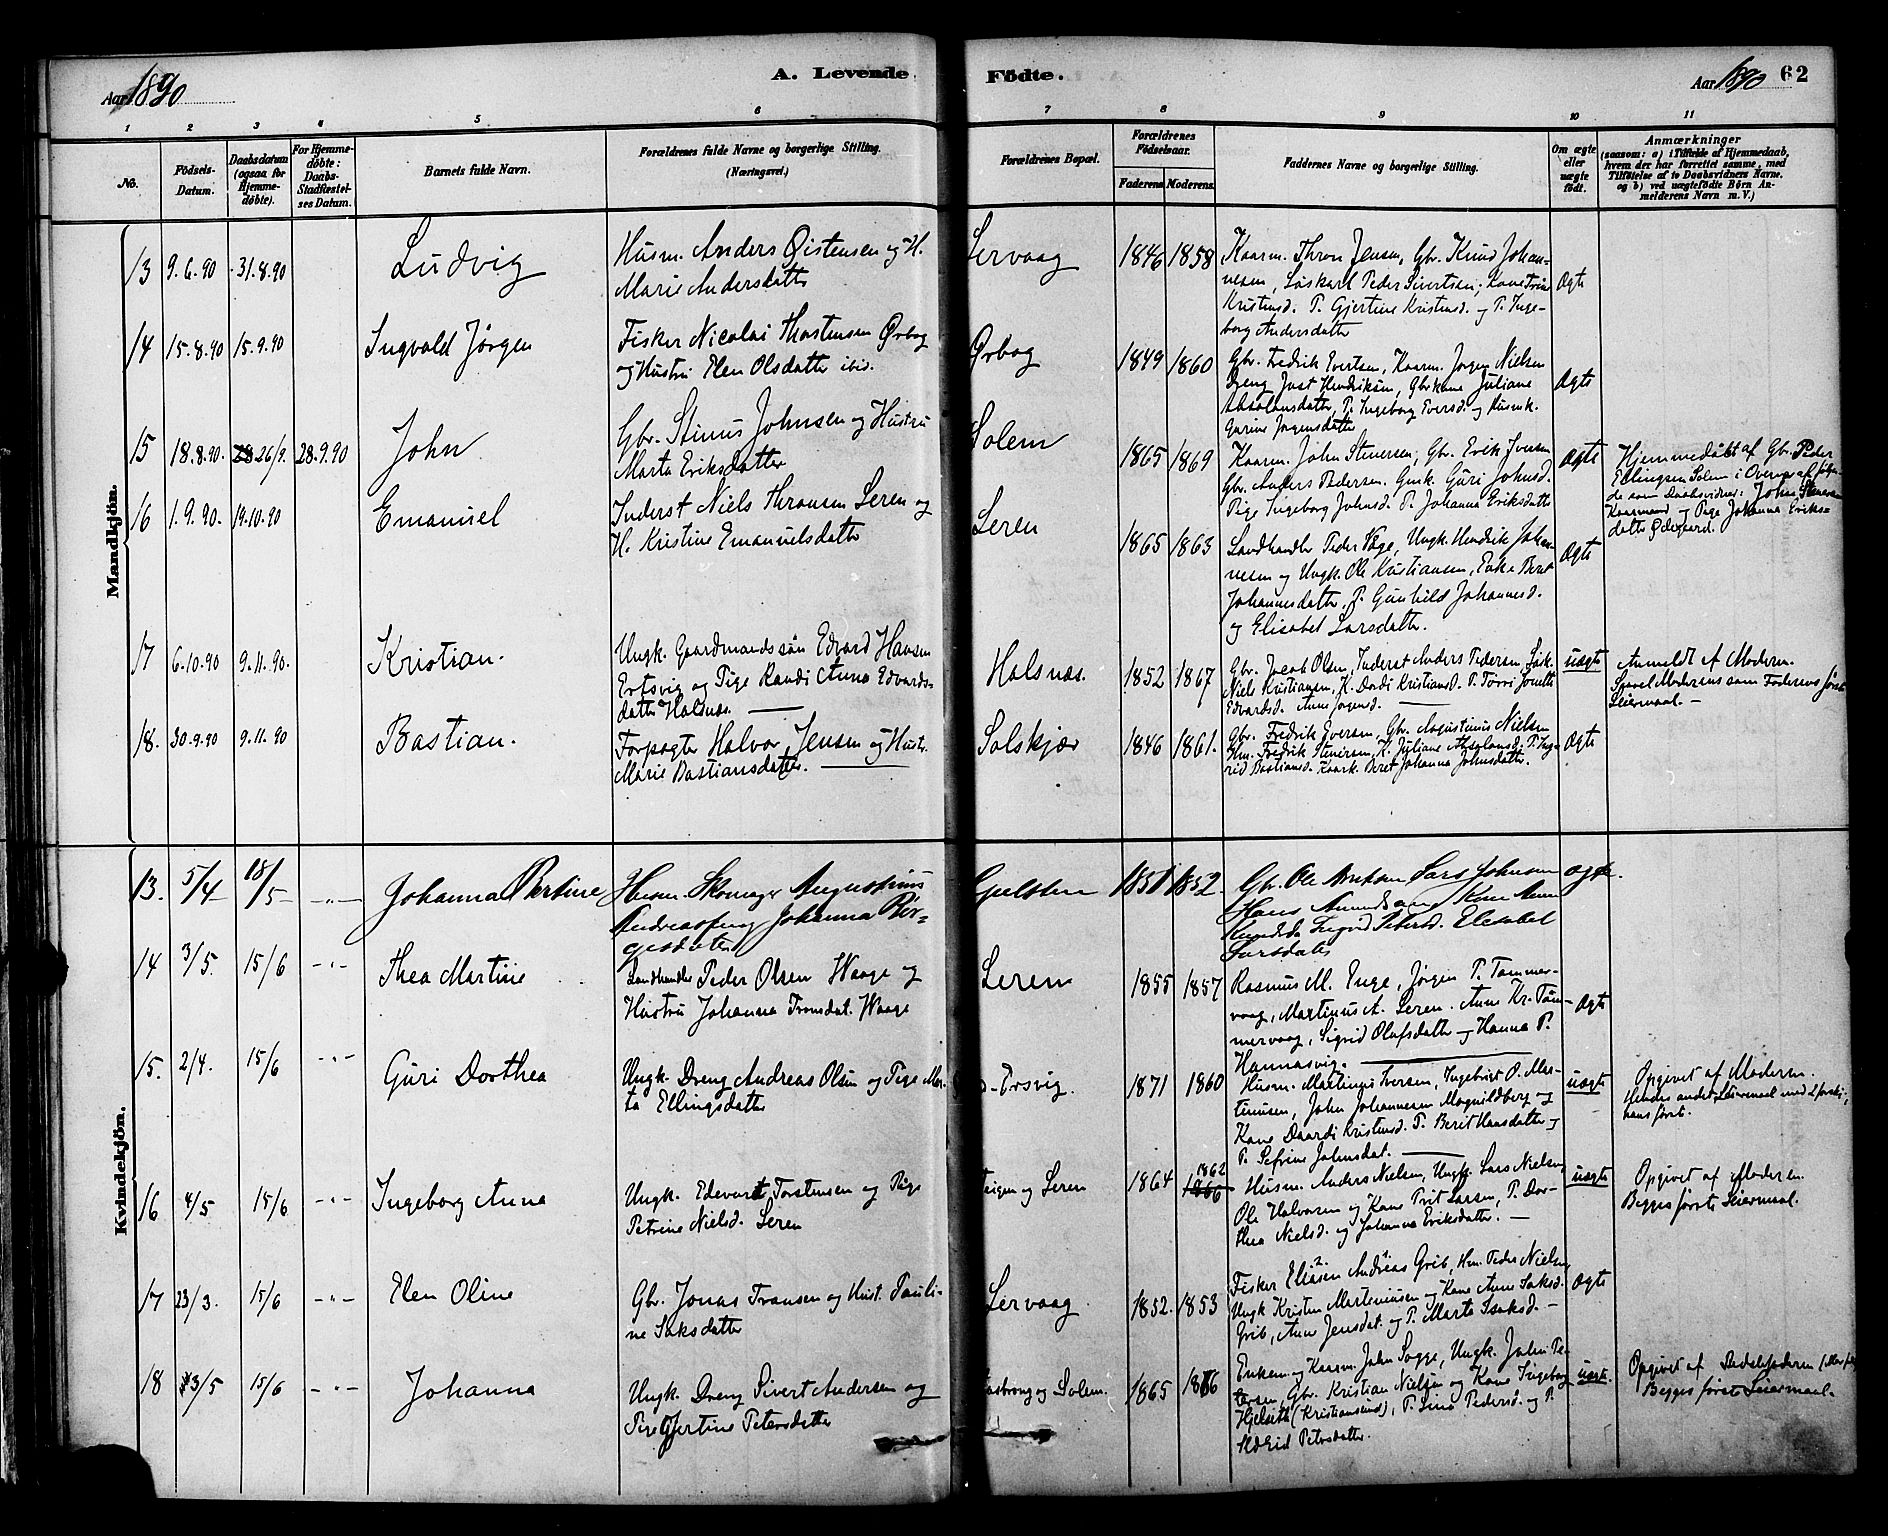 Aar 1890
A. Levende Fødte.
Aar 1890 62
1 2 3 4 5 6 7 8 9 10 11
No.
Fødsels-
Datum.
Daabsdatum
(ogsaa for
Hjemme-
døbte).
For Hjemme-
døbte:
Daabs-
Stadfæstel-
ses Datum.
Barnets fulde Navn.
Forældrenes fulde Navne og borgerlige Stilling.
(Næringsvei.)
Forældrenes Bopæl.
Forældrenes
Fødselsaar.
Faderens. Moderens.
Faddernes Navne og borgerlige Stilling.
Om ægte
eller
uægte
født.
Anmærkninger
(saasom: a) i Tilfælde af Hjemmedaab,
hvem der har forrettet samme, med
Tilføielse af to Daabsvidners Navne,
og b) ved uægtefødte Børn An-
melderens Navn m. V.)
Mandkjön.
13 9.6.90 31.8.90 Ludvig
Husm. Anders Øistensen og H.
Marie Andersdatter
Lervaag 1846 1858
Kaarm. Thron Jensen, Gbr. Knud Johan-
nesen, Løskarl Peder Sivertsen, Kone Trine
Kristensd. P. Gjertine Kristensd. og P. Inge-
borg Andersdatter
Ægte
14 15.8.90 15.9.90 Ingvald Jørgen
Fisker Nicolai Thorstensen Ørbog
og Hustru Elen Olsdatter ibid.
Ørbog 1849 1860
Gbr. Fredrik Evertsen, Kaarm. Jørgen Nielsen
Dreng Just Hendriksen, Gbrkone Juliane
Absalonsdatter, P. Ingeborg Eversd. og Husmk.
Gurine Jørgensdatter
Ægte
15 18.8.90. 26/9. 28.9.90 John
Gbr. Stinus Johnsen og Hustru
Marta Eriksdatter
Solem 1865 1869
Kaarm. John Stenersen, Gbr. Erik Iversen
Gbr. Anders Pedersen. Gmk. Guri Johnsd.
Pige Ingeborg Johnsd. P. Johanna Eriksdatter
Ægte
Hjemmedøbt af Gbr. Peder
Ellingsen Solem i Overvær af følgen-
de som Daabsvidner: John Stenersen
Kaarmand og Pige Johanna Eriks-
datter Ødegaard.
16 1.9.90. 19.10.90 Emanuel
Inderst Niels Thronsen Leren og
H. Kristine Emanuelsdatter
Leren 1865 1863
Landhandler Peder Vage, Ungk. Hendrik Johan-
nesen og Ungk. Ole Kristiansen, Enke Beret
Johannesdatter, P. Gunhild Johannesd.
og Elisabet Larsdatter.
Ægte
17 6.10.90 9.11.90. Kristian.
Ungk. Gaardmandssøn Edvard Hansen
Ertsvig og Pige Randi Anna Edvards-
datter Holsnæs.
Holsnæs. 1852 1867
Gbr. Jacob Olsen, Inderst Anders Pedersen, Løsk.
Niels Kristiansen, K. Dordi Kristiansd. P. Torri Jonette
Edvardsd. Anne Jørgensd.
uægte
Anmeldt af Moderen.
Saavel Moderens som Faderens første
Leiermaal.
18. 30.9.90 9.11.90 Bastian.
Forpagter Halvor Jensen og Hustr.
Marie Bastiansdatter.
Solskjær 1846 1861.
Gbr. Fredrik Eversen, Gbr. Augustinus Nielsen
Hm. Fredrik Stenersen, K. Juliane Absalonsd. P. Ing-
rid Bastiansd. Kaark. Beret Johanna Johnsdatter.
Ægte
Kvindekjön.
13. 5/4 18/5 Johanna Bertine
Husm. Skomager Augustinus
Andreassen og Johanna Bør-
gesdatter
Gulsten 1851 1852.
Gbr. Ole Lars Johnsen
Hans Amundsen Kone Anne
Knudsd. Ingrid Petersd. Elesabet
Larsdatter
ægte.
14 3/5. 15/6 Thea Martine
Landhandler Peder Olsen Waage og
Hustru Johanna Tronsdat. Waage
Leren 1855 1857
Rasmus M. Enge, Jørgen P. Tømmer-
vaag, Martinus A. Leren. Anne Kr. Tøm-
mervaag, Sigrid Olafsdatter og Hanna P.
Hannasvig.
Ægte
15. 2/4. 15/6 Guri Dorthea
Ungk. Dreng Andreas Olsen og Pige Mar-
ta Ellingsdatter
Ersvig. 1871 1860
Husm. Martinus Iversen, Ingebrigt O. Mar-
tinusen, John Johannesen Magnildberg og
Kone Daardi Kristensd. P. Berit Hansdatter og
P. Sefrine Johnsdat.
uægte
Opgivet af Moderen.
Hendes andet Leiermaal med 2 forskj.,
hans først.
16 4/5 15/6 Ingeborg Anna
Ungk. Edevart Torstensen og Pige
Petrine Nielsd. Leren
og Leren 1864 1862 1866
Husm. Anders Nielsen, Ungk. Lars Nielsen
Ole Halvorsen og Kone Brit Larsen, P. Dor-
thea Nielsd. og Johanna Eriksdatter.
uægte
Opgivet af Moderen.
Begges første Leiermaal.
17 23/3. 15/6 Elen Oline
Gbr. Jonas Transen og Hust. Pauli-
ne Isaksdatter
Lervaag 1852. 1853
Fisker Eliasen Andreas Grib, Hm. Peder Nielsen
Ungk Kristen Marteniusen og Kone Anne Isaksd.
Grib, Anne Jensdat. og P. Marta Isaksd.
Ægte
18 3/5 15/6 Johanna
Ungk. Dreng Sivert Andersen og
Pige Gjertine Petersdatter
og Solem. 1865 1866
Enkem. og Kaarm. John Sogge, Ungk. John Pe-
tersen, Gbr. Kristian Nielsen og Kone Ingeborg
Hjelseth (Kristiansund), P. Lina Pedersd. og P.
Petersdatter.
uægt.
Opgivet af
Begges først Leiermaal.